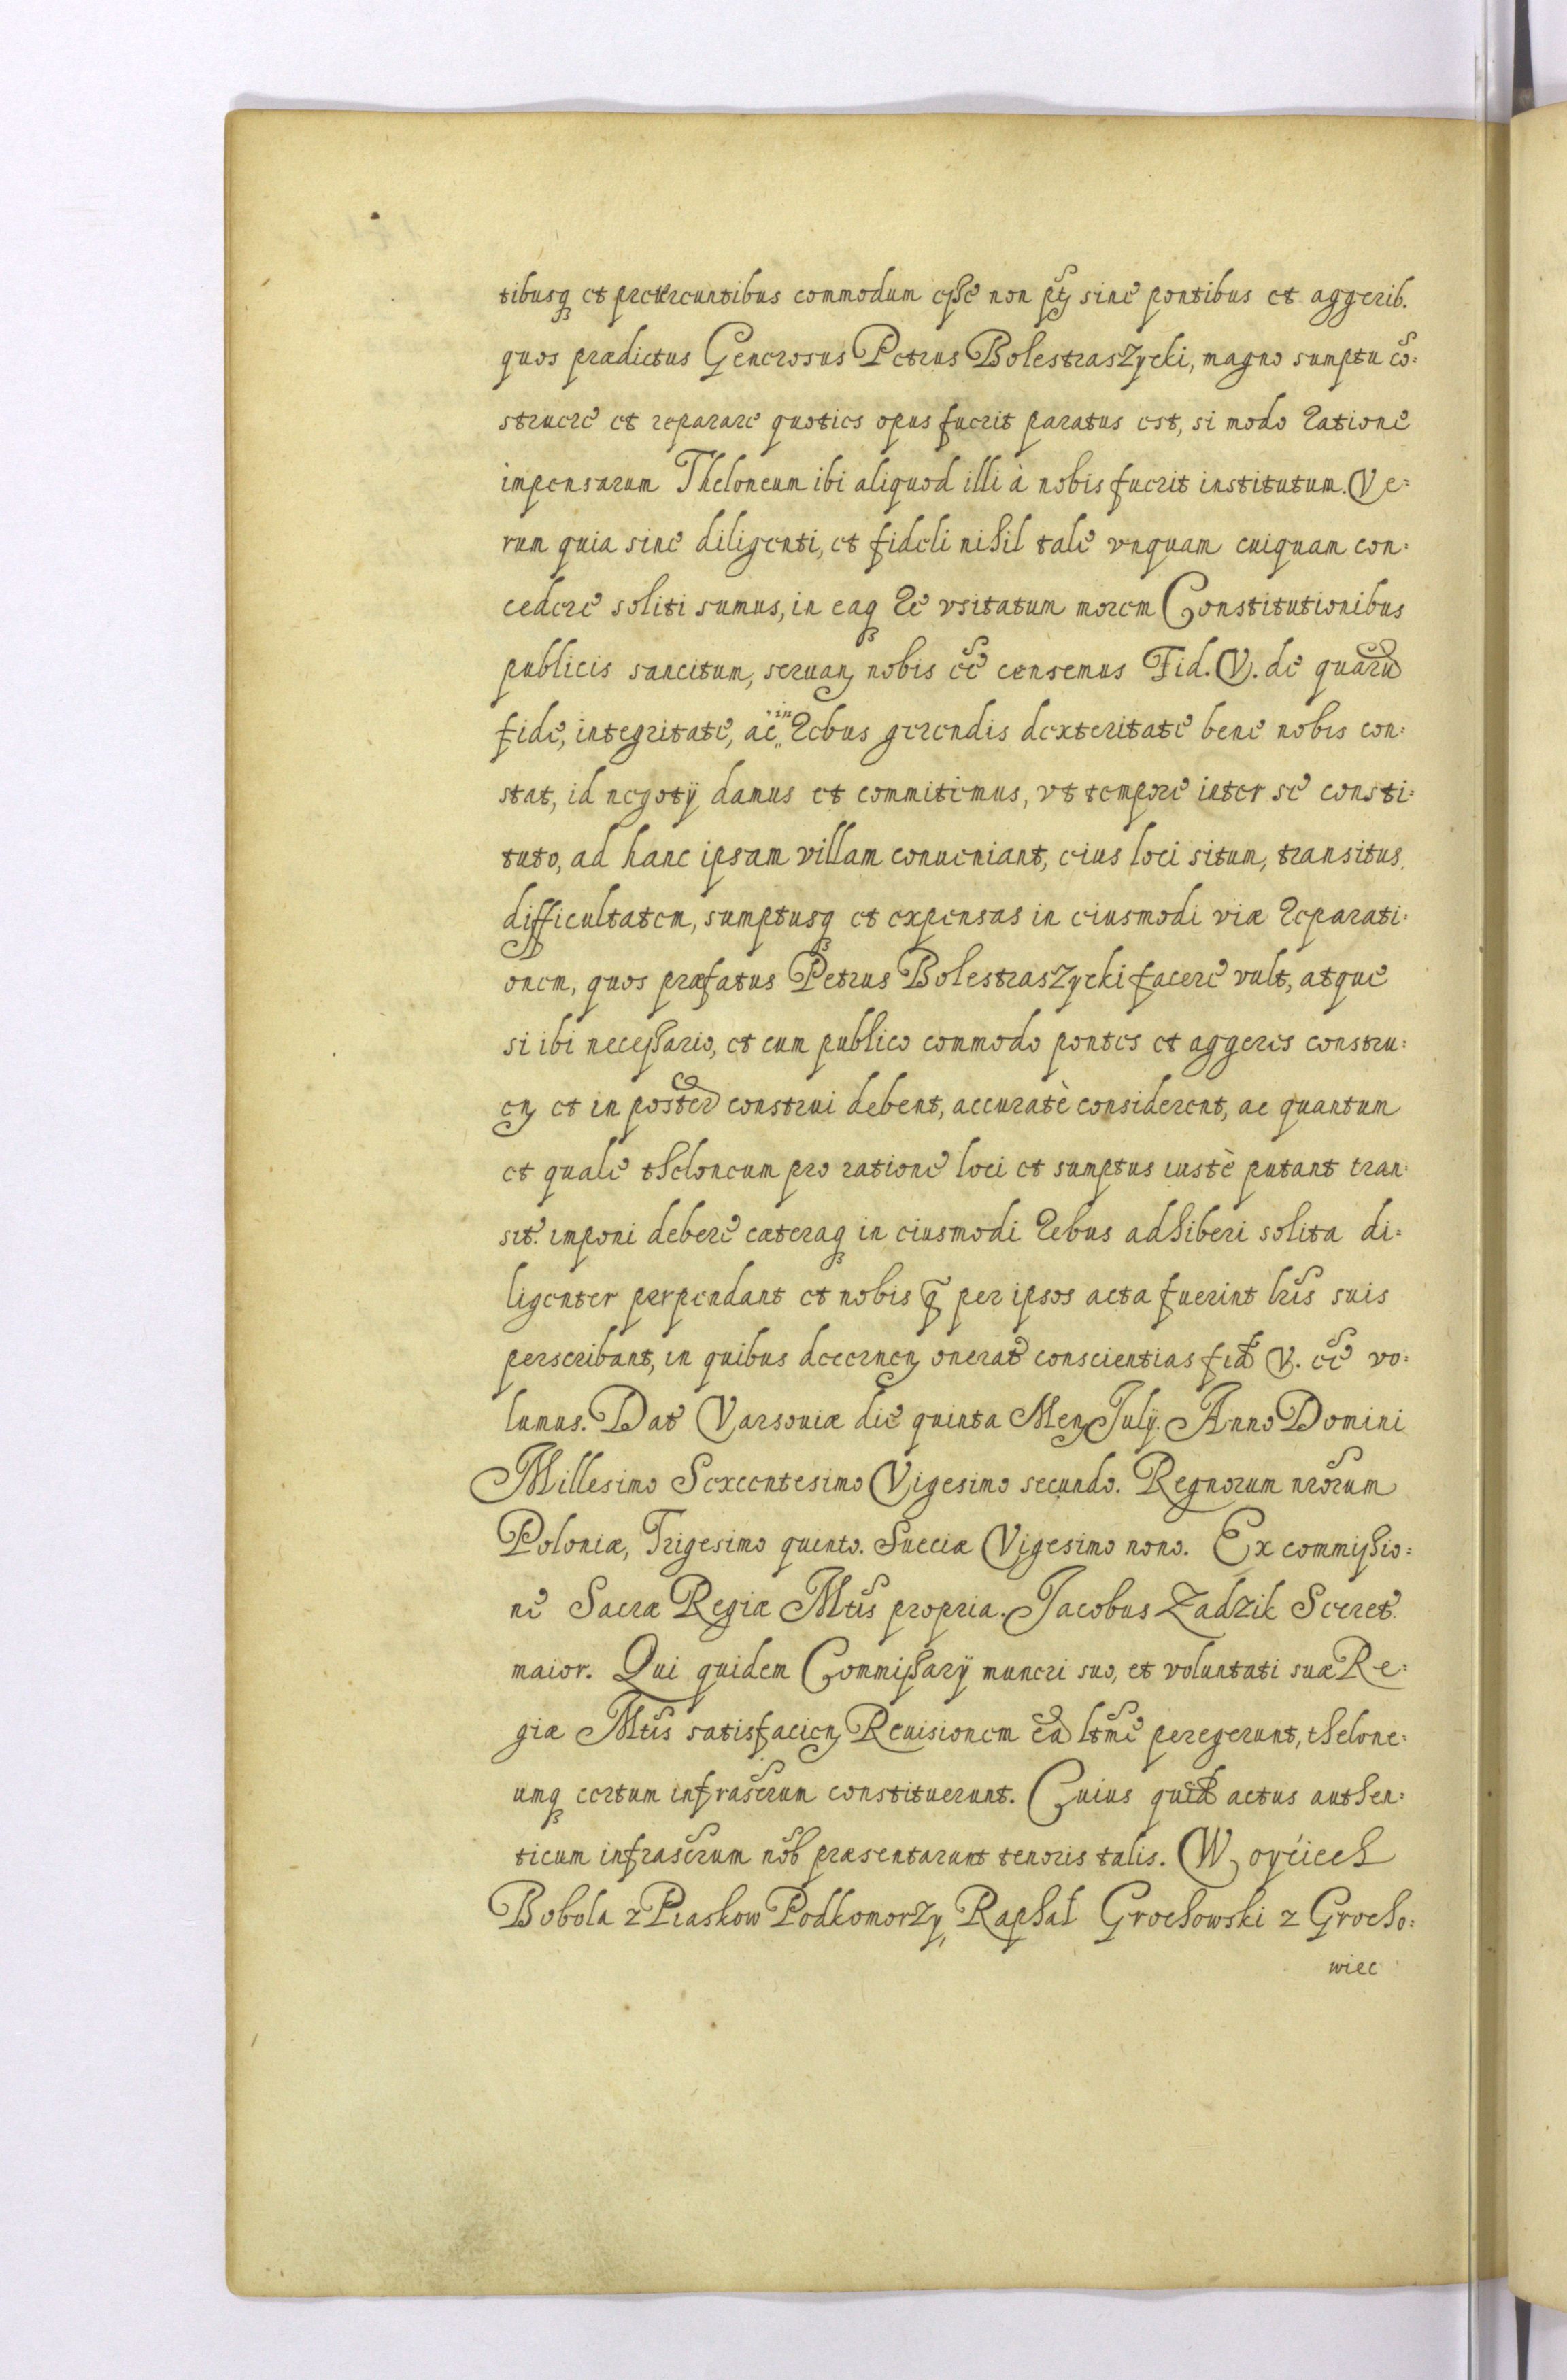 tibusq; et prætereuntibus commodum esse non põt sine pontibus et aggerib.
quos prædictus Generosus Petrus Bolestraszycki, magno sumptu cõ:
struere et reparare quoties opus fuerit paratus est, si modo ratione
impensarum Theloneum ibi aliquod illi à nobis fuerit institutum. Ve:
rum quia sine diligenti, et fideli nihil tale vnquam cuiquam con:
cedere soliti sumus, in eaq; re vsitatum morem Constitutionibus
publicis sancitum, seruan; nobis eẽ censemus Fid. V. de quarũ
fide, integritate, ac in rebus gerendis dexteritate bene nobis con:
stat, id negotÿ damus et committimus, vt tempore inter se consti:
tuto, ad hanc ipsam villam conueniant, eius loci situm, transitus
difficultatem, sumptusq; et expensas in eiusmodi viæ reparati:
onem, quos præfatus Petrus Bolestraszycki facere vult, atque
si ibi necessario, et cum publico commodo pontes et aggeres constru:
en; et in poster̃ construi debent, accuratè considerent, ac quantum
et quale theloneum pro ratione loci et sumptus iustè putant tran:
sit. imponi debere cæteraq; in eiusmodi rebus adhiberi solita di:
ligenter perpendant et nobis q̃ per ipsos acta fuerint lr̃is suis
perscribant, in quibus decernen; onerat̃ conscientias fid V. eẽ vo:
lumus. Dat Varsouiæ die quinta Men; Julÿ. Anno Domini
Millesimo Sexcentesimo Vigesimo secundo. Regnorum nr̃orum
Poloniæ, Trigesimo quinto. Sueciæ Vigesimo nono. Ex commissio:
ne Sacræ Regiæ Mt̃is propria. Jacobus Zadzik Secret.
maior. Qui quidem Commissarÿ muneri suo, et voluntati suæ Re:
giæ Mt̃is satisfacien; Reuisionem eã lt̃me peregerunt, thelone:
umq; certum infrascr̃um constituerunt. Cuius quid actus authen:
ticum infrascr̃um nõb præsentarunt tenoris talis. Woyćiech
Bobola z Piaskow Podkomorzy, Raphał Grochowski z Grocho:
wiec